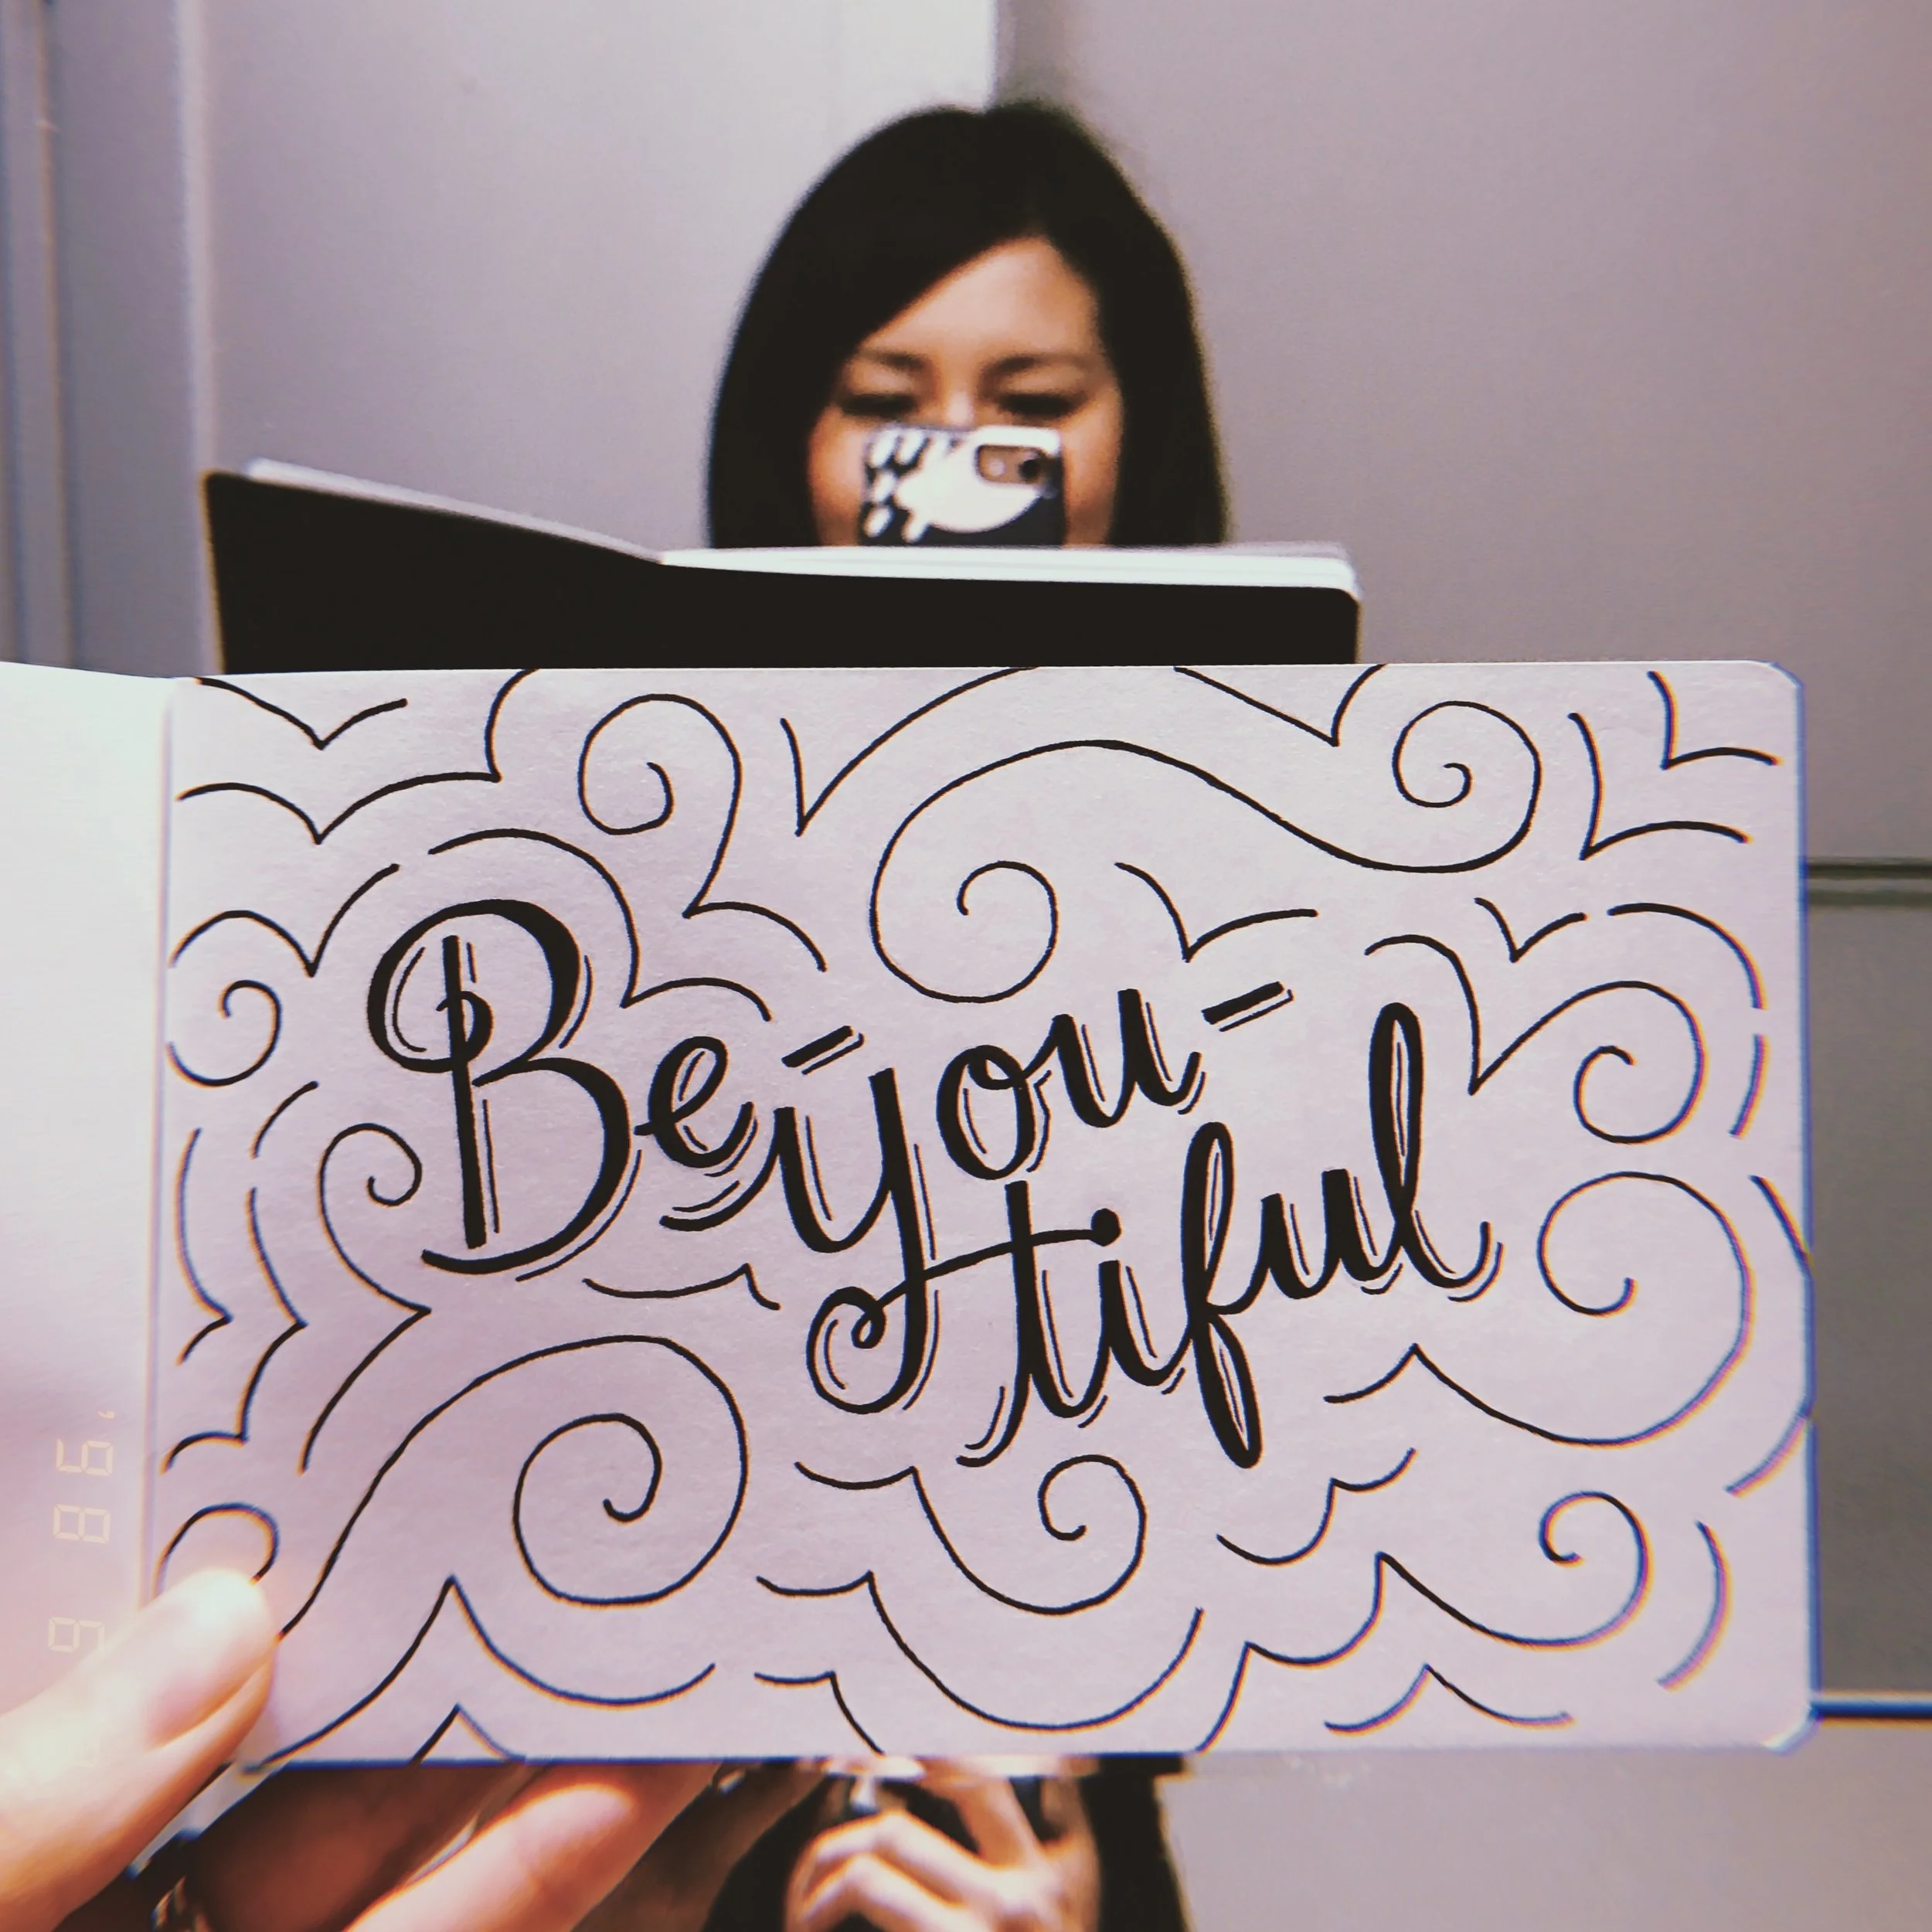 Be-you-
tiful
'98 8 6